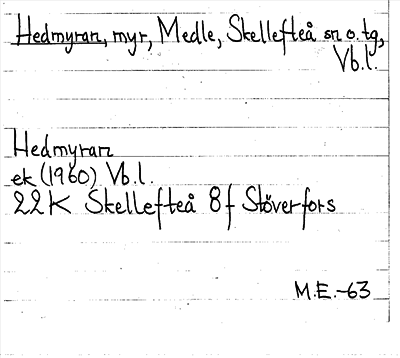 Hedmyran, myr, Medle, Skellefteå sn o. tg,
Vb.l.
Hedmyran
ek (1960) Vb.l.
22K Skellefteå 8f Stöverfors
M.E.-63